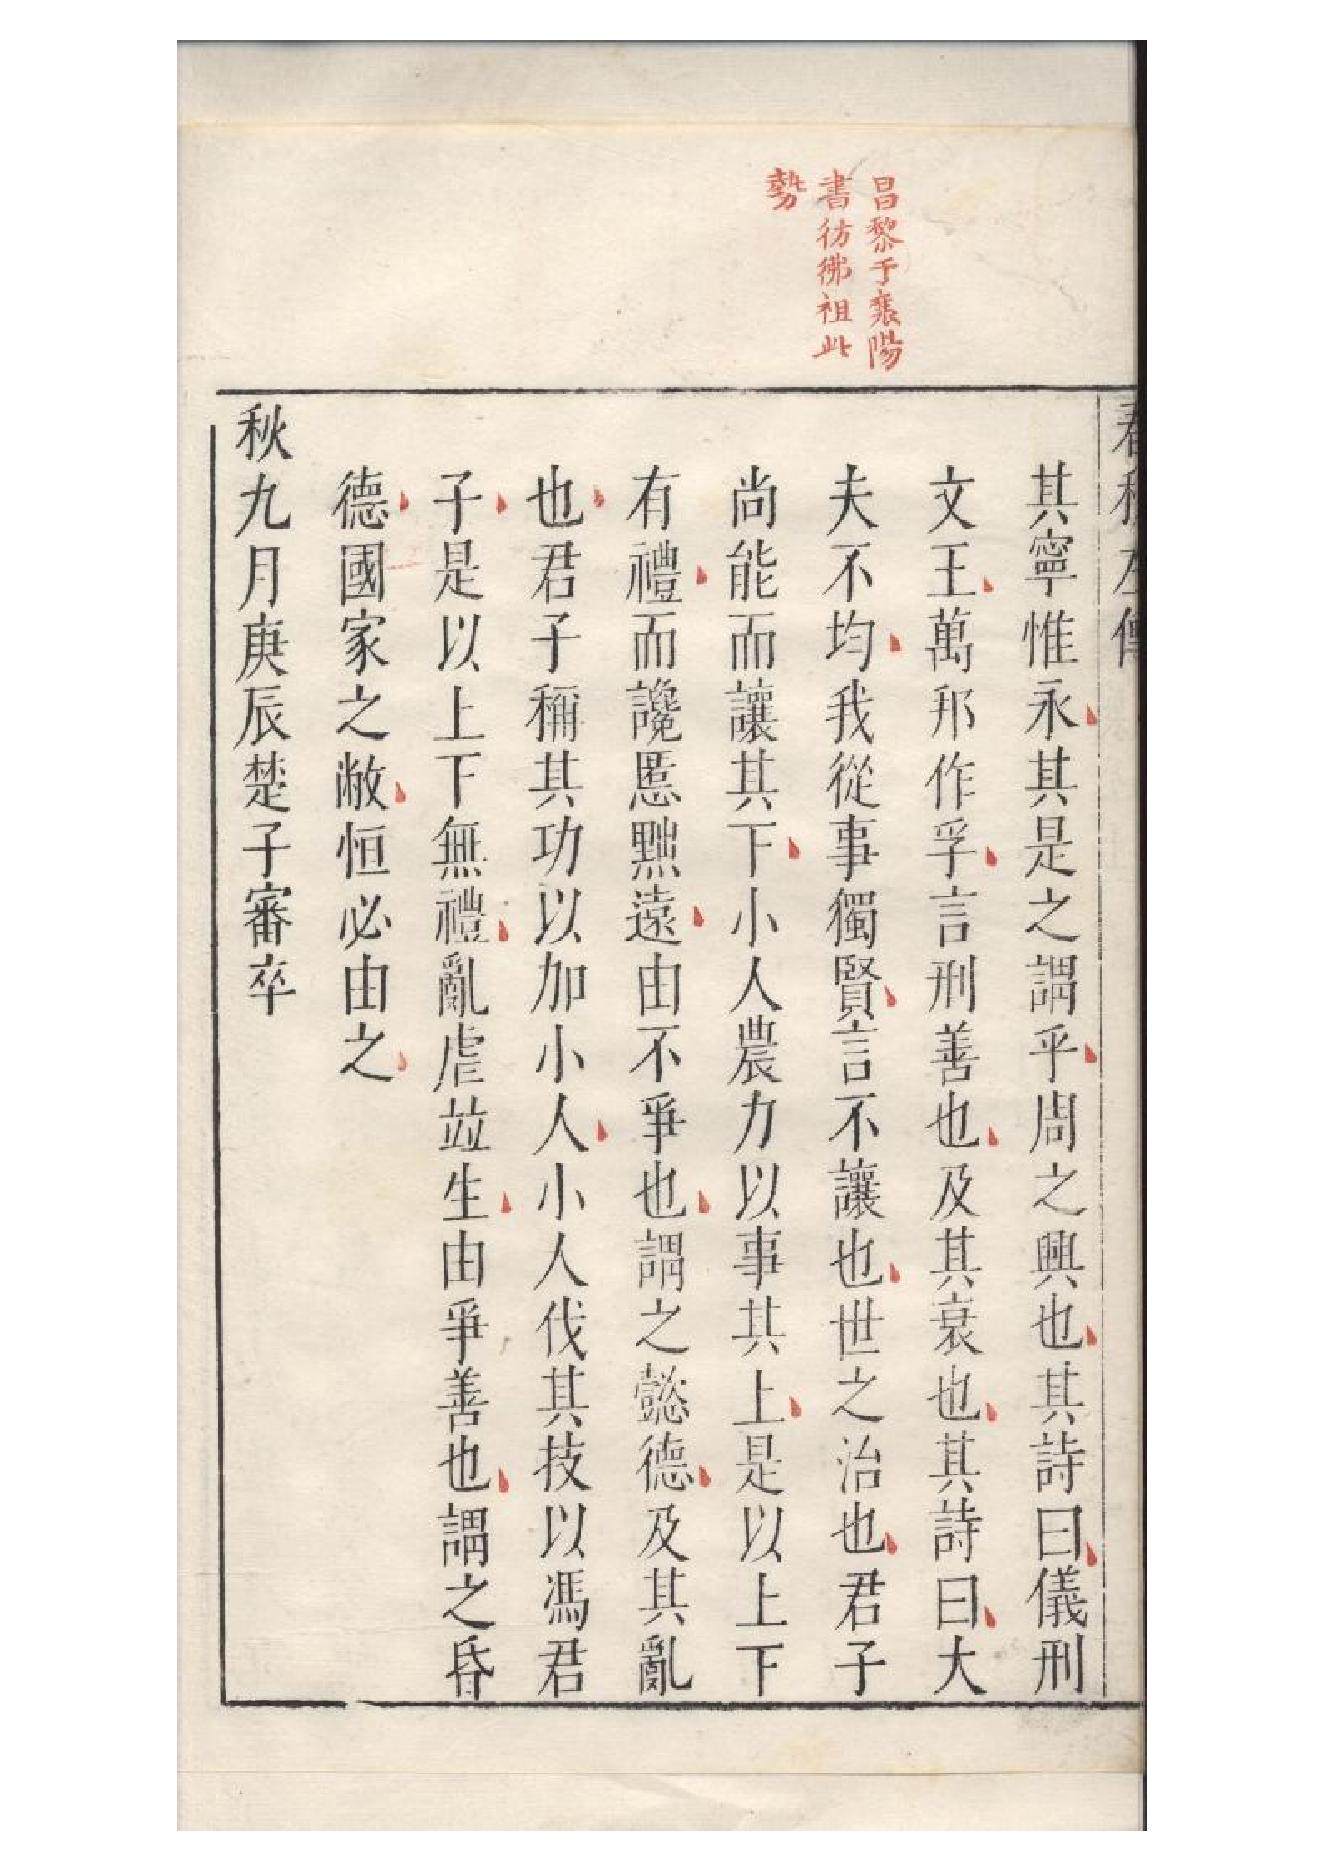 春秋左傳
昌黎于襄陽
書彷彿祖此
勢
其寧惟永其是之謂乎周之興也其詩曰儀刑
文王萬邦作孚言刑善也及其衰也其詩曰大
夫不均我從事獨賢言不讓也世之治也君子
尚能而讓其下小人農力以事其上是以上下
有禮而讒慝黜遠由不爭也謂之懿德及其亂
也君子稱其功以加小人小人伐其技以馮君
子是以上下無禮亂虐竝生由爭善也謂之昏
德國家之敝恒必由之
秋九月庚辰楚子審卒